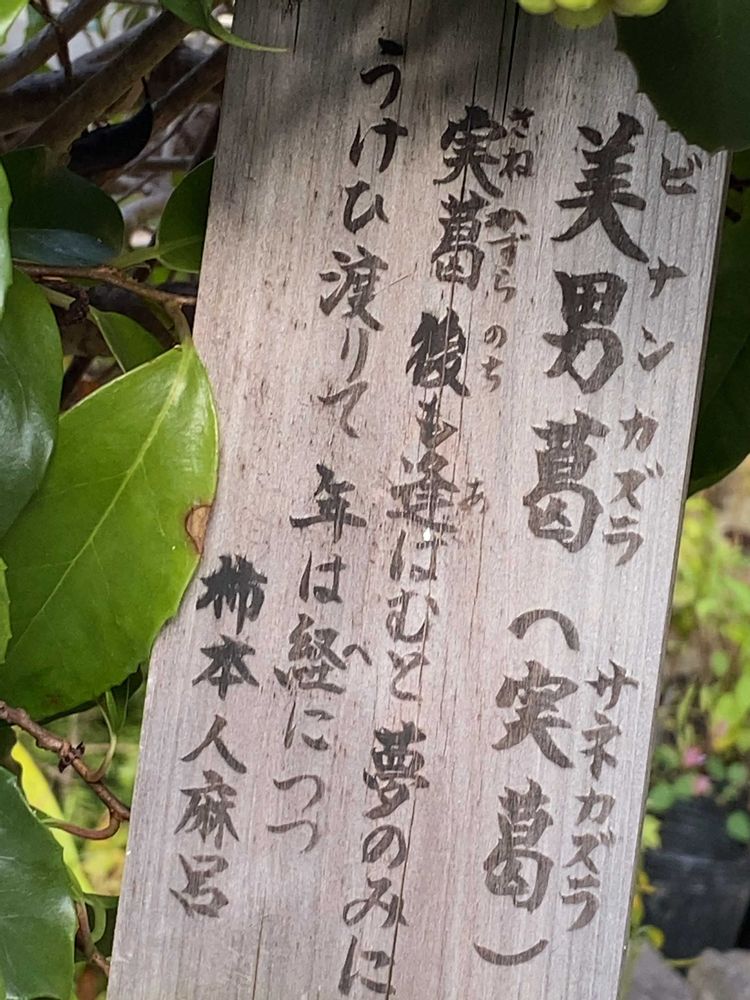 美男葛（実葛）
ビナンカズラ　サネカズラ
実葛 後も逢はむと 夢のみに
さねかずら のち あ
うけひ渡りて 年は経につつ
へ
柿本人麻呂